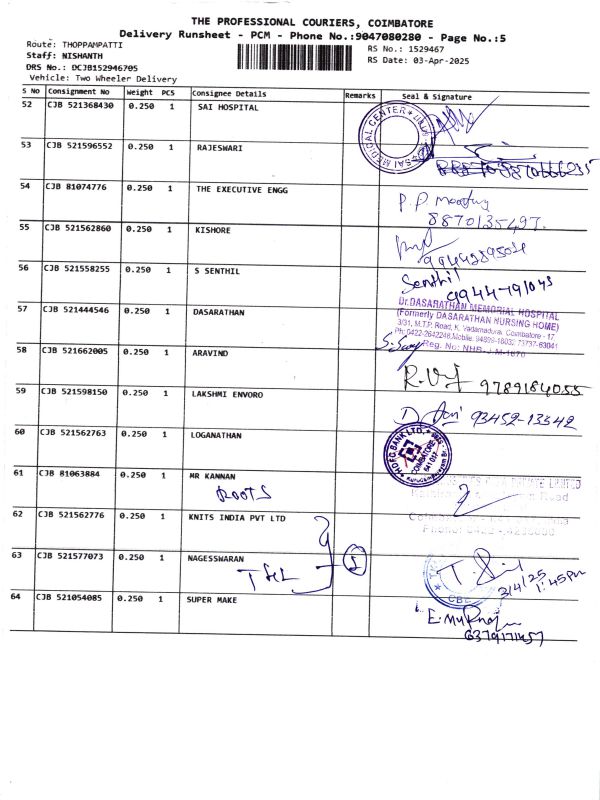 THE PROFESSIONAL COURIERS, COIMBATORE
Delivery Runsheet - PCM - Phone No.:9047080280 - Page No.:5
Route: THOPPAMPATTI
RS No.: 1529467
Staff: NISHANTH
RS Date: 03-Apr-2025
DRS No.: DCJB152946705
Vehicle: Two Wheeler Delivery
S No Consignment No Weight PCS Consignee Details Remarks Seal & Signature
52 CJB 521368430 0.250 1 SAI HOSPITAL
SAI MEDICAL CENTER
53 CJB 521596552 0.250 1 RAJESWARI
54 CJB 81074776 0.250 1 THE EXECUTIVE ENGG
8870135497
55 CJB 521562860 0.250 1 KISHORE
56 CJB 521558255 0.250 1 S SENTHIL
Senthil
9944791043
57 CJB 521444546 0.250 1 DASARATHAN
Dr.DASARATHAN MEMORIAL HOSPITAL
(Formerly DASARATHAN NURSING HOME)
3/31, M.T.P. Road, K. Vadamadurai, Coimbatore - 17
Ph:0422-2642248,Mobile:
Reg. No:
58 CJB 521662005 0.250 1 ARAVIND
9789184055
59 CJB 521598150 0.250 1 LAKSHMI ENVORO
93452-13542
60 CJB 521562763 0.250 1 LOGANATHAN
HDFC BANK LTD.
COIMBATORE
641 017
61 CJB 81063884 0.250 1 MR KANNAN
ROOTS
62 CJB 521562776 0.250 1 KNITS INDIA PVT LTD
63 CJB 521577073 0.250 1 NAGESSWARAN
3/4/25
1:45pm
64 CJB 521054085 0.250 1 SUPER MAKE
6379171457